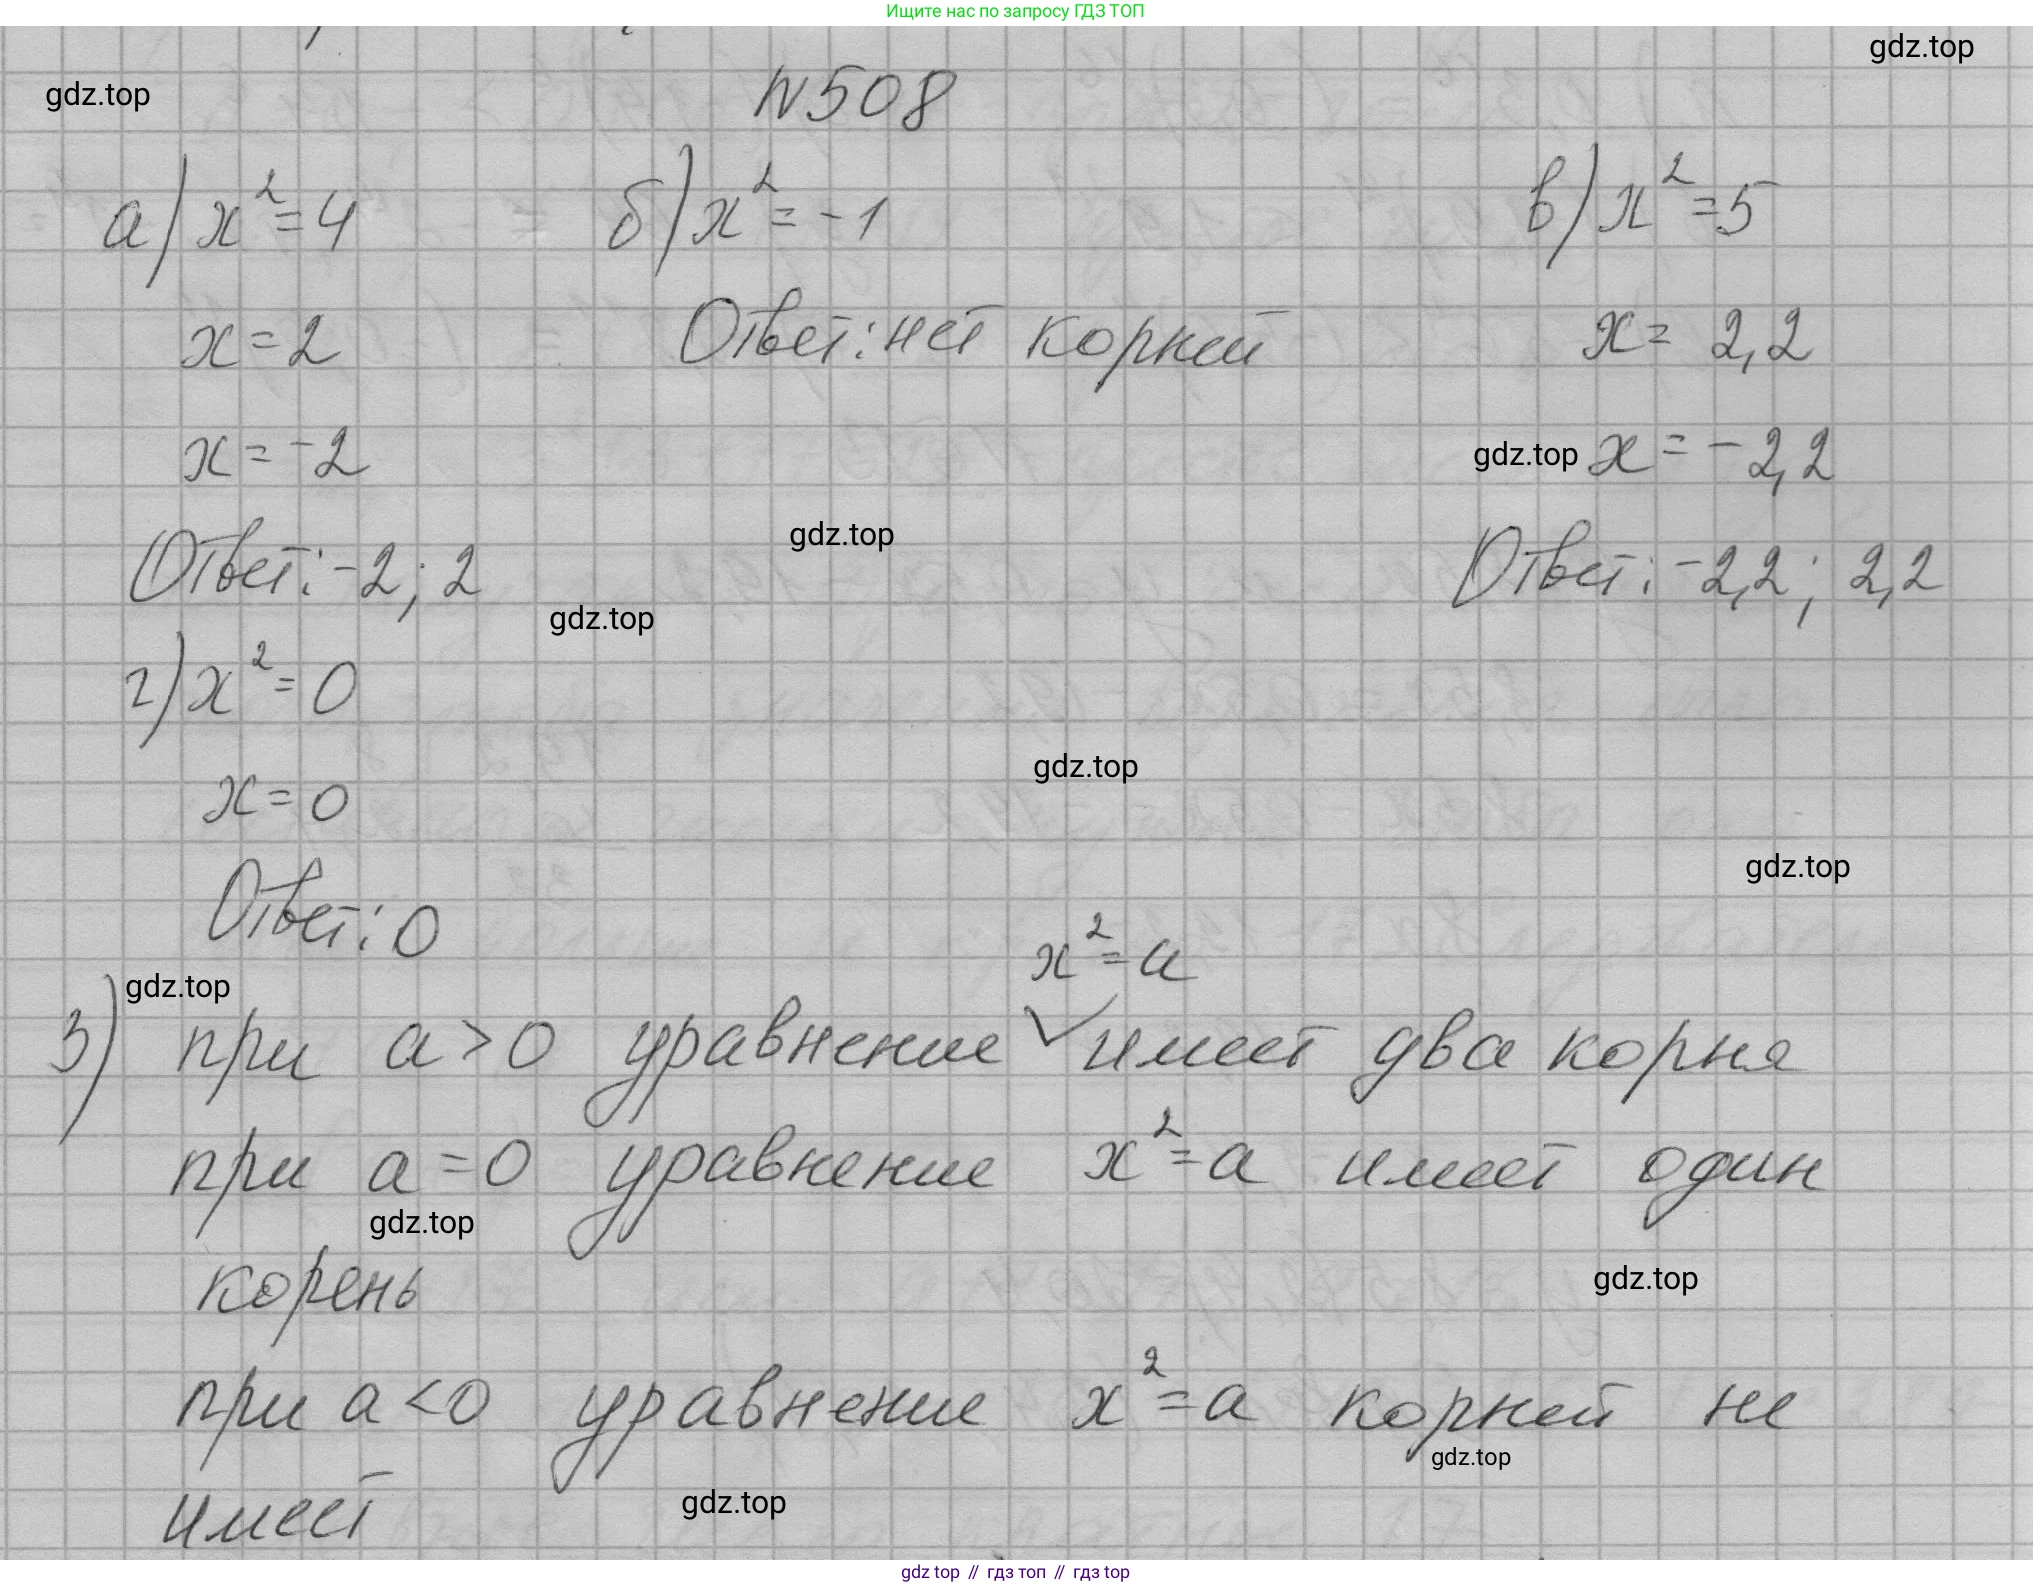 Ищите нас по запросу ГДЗ ТОП
gdz.top
gdz.top
N508
а) x²=4
б) x²=-1
в) x²=5
x=2
Ответ: нет корней
x= 2,2
x=-2
gdz.top
x=-2,2
gdz.top
Ответ: -2; 2
Ответ: -2,2; 2,2
gdz.top
г) x²=0
gdz.top
x=0
gdz.top
Ответ: 0
x²=a
gdz.top
3) при a>0 уравнение имеет два корня
при a=0 уравнение x²=a имеет один
gdz.top
корень
gdz.top
при a<0 уравнение x²=a корней не
gdz.top
имеет
gdz.top
gdz top // гдз топ // гдз top